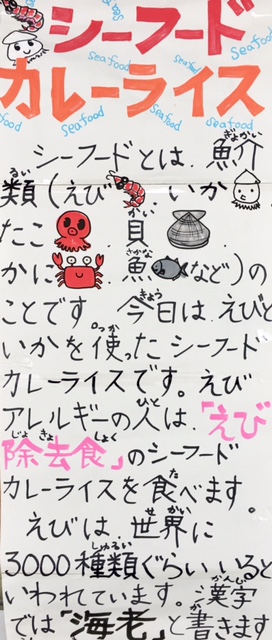 シーフード
カレーライス
Seafood
Seafood
Seafood
Seafood
シーフードとは、魚介
類(えび、いか、
たこ、貝
かに、魚など)の
ことです。今日は、えびと
いかを使ったシーフード
カレーライスです。えび
アレルギーの人は、「えび
除去食」のシーフード
カレーライスを食べます。
えびは、世界に
3000種類ぐらいいると
いわれています。漢字
では「海老」と書きます